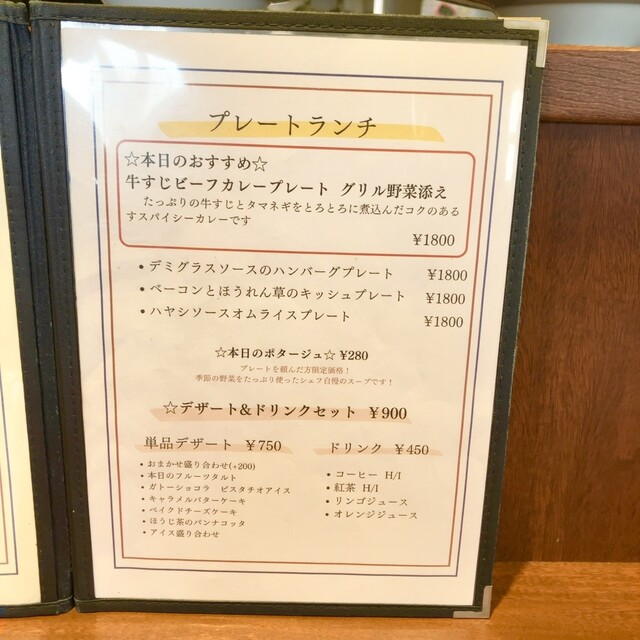 プレートランチ
☆本日のおすすめ☆
牛すじビーフカレープレート グリル野菜添え
たっぷりの牛すじとタマネギをとろとろに煮込んだコクのあ
るスパイシーカレーです
¥1800
• デミグラスソースのハンバーグプレート ¥1800
• ベーコンとほうれん草のキッシュプレート ¥1800
• ハヤシソースオムライスプレート ¥1800
☆本日のポタージュ☆ ¥280
プレートを頼んだ方限定価格！
季節の野菜をたっぷり使ったシェフ自慢のスープです！
☆デザート&ドリンクセット ¥900
単品デザート ¥750
• おまかせ盛り合わせ(+200)
• 本日のフルーツタルト
• ガトーショコラ ピスタチオアイス
• キャラメルバターケーキ
• ベイクドチーズケーキ
• ほうじ茶のパンナコッタ
• アイス盛り合わせ
ドリンク ¥450
• コーヒー H/I
• 紅茶 H/I
• リンゴジュース
• オレンジジュース